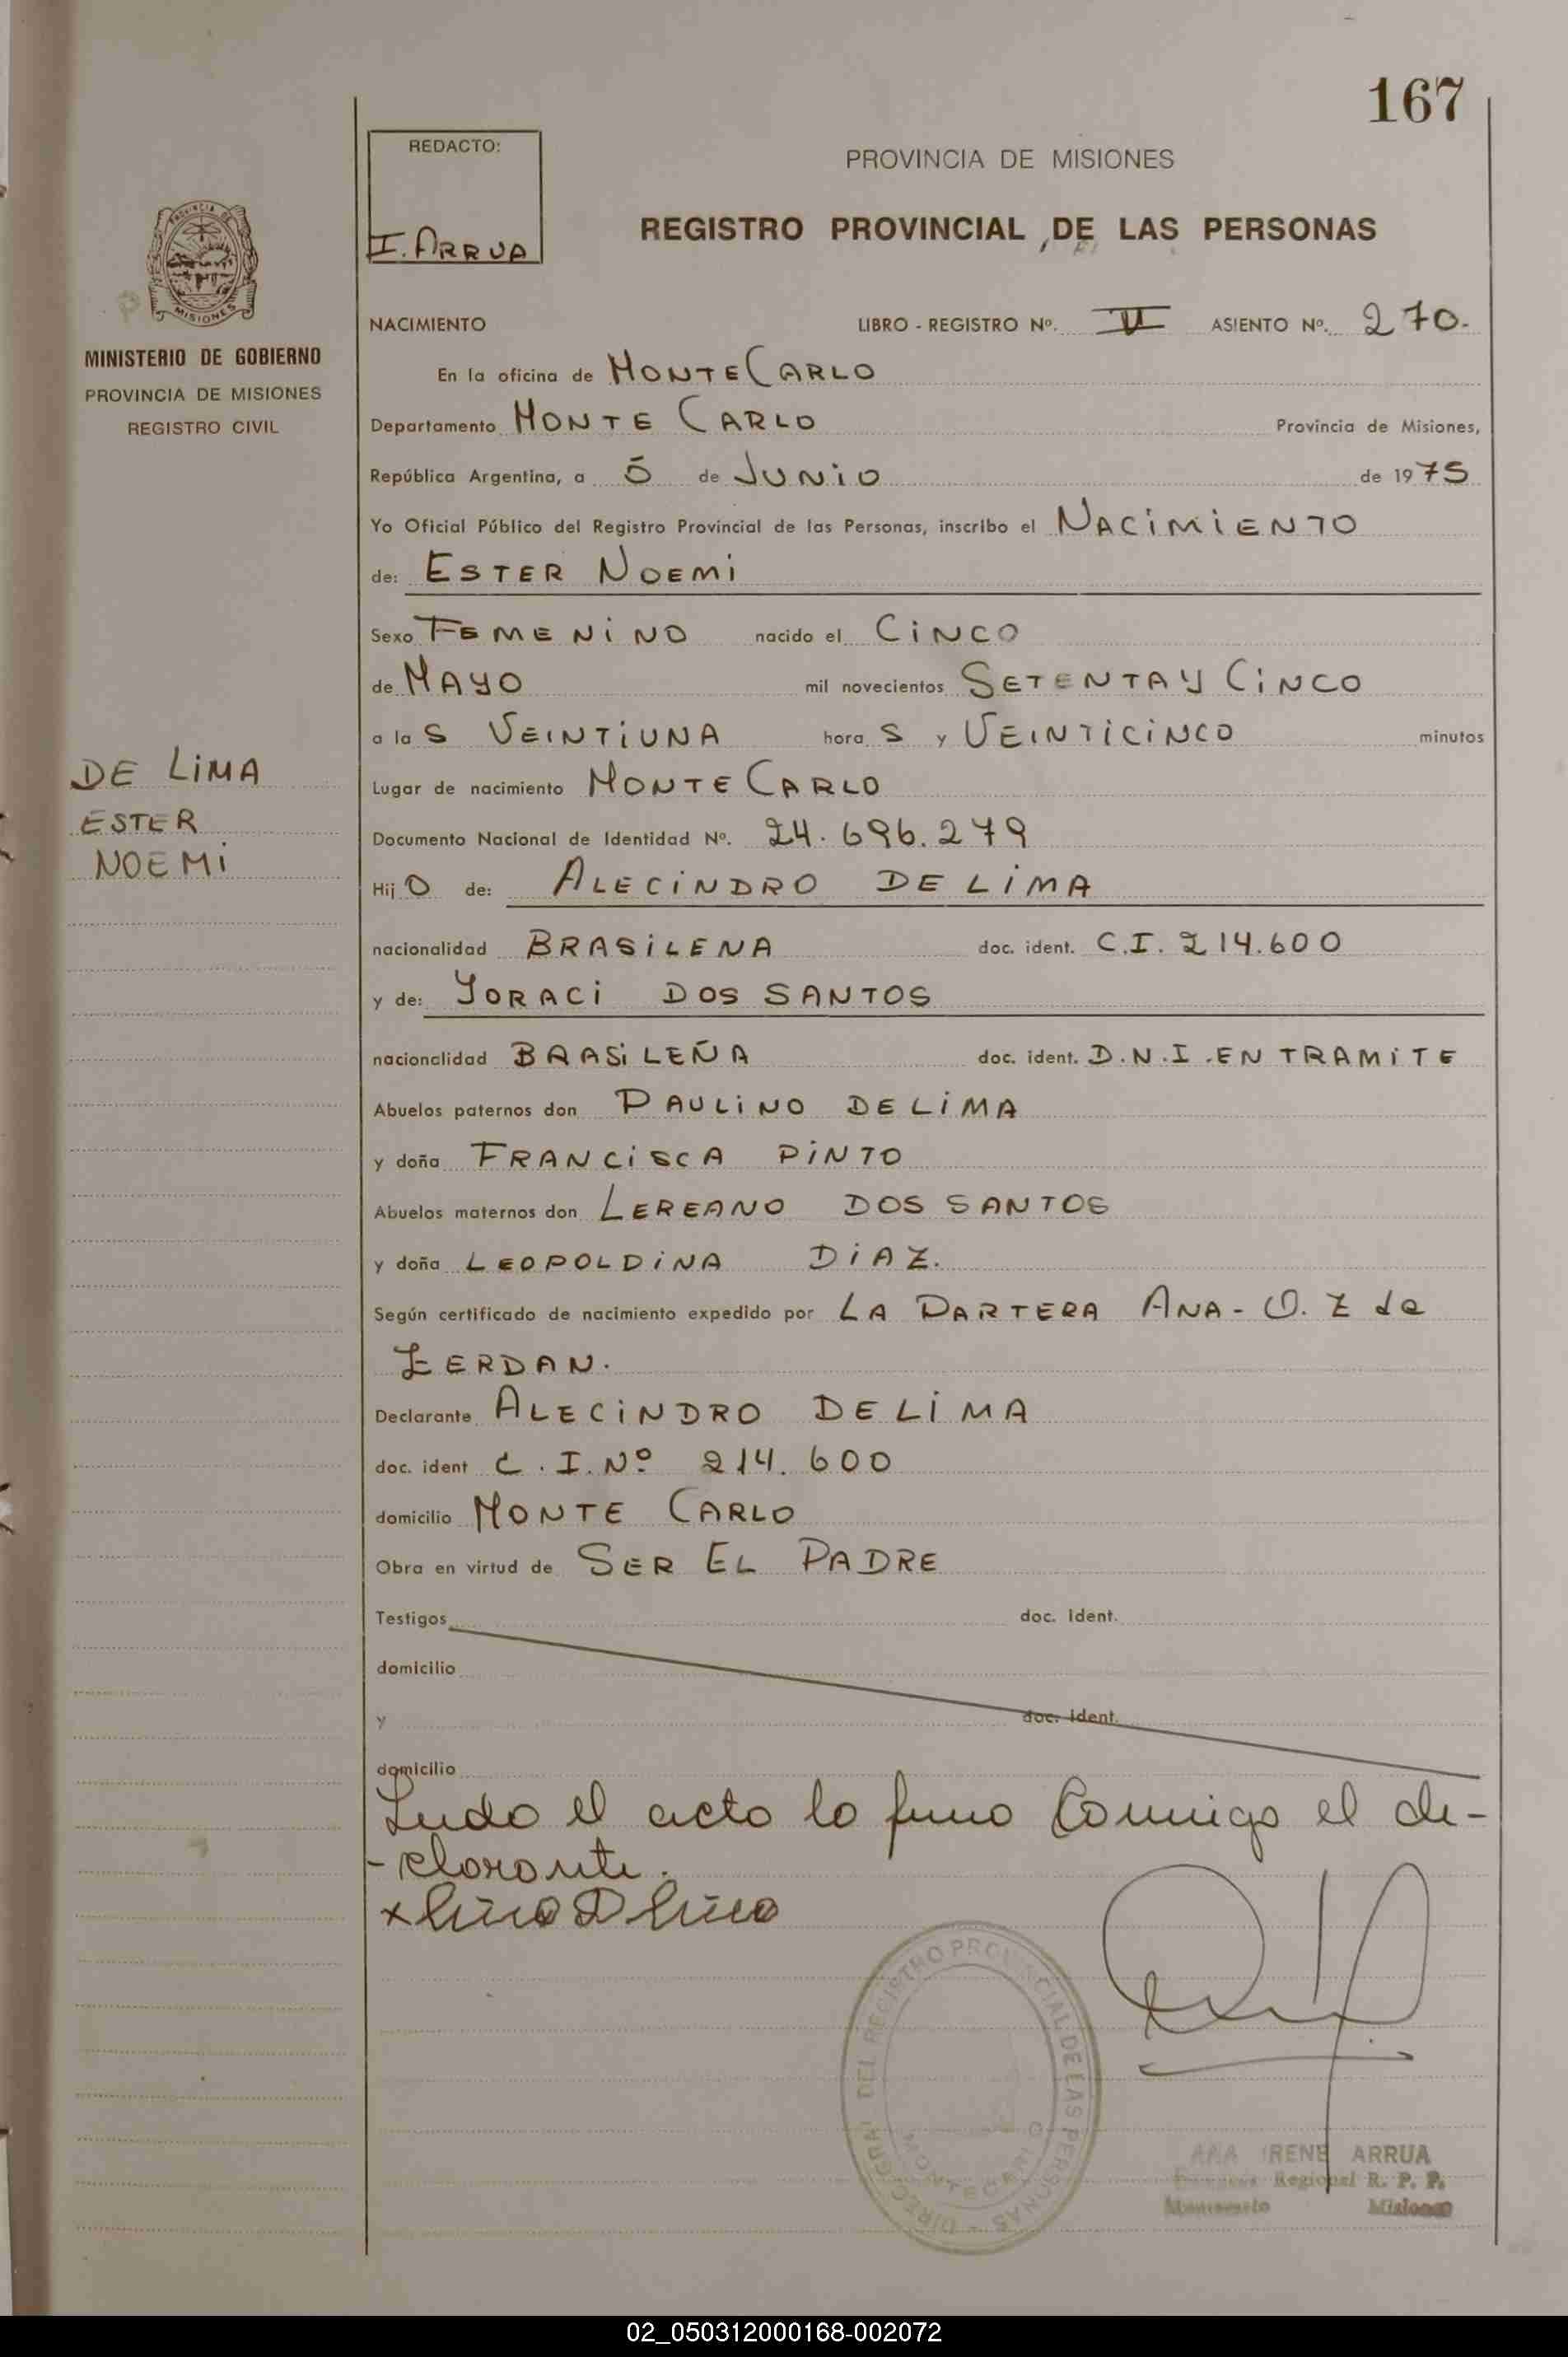 167
REDACTO:
I. ARRUA
PROVINCIA DE MISIONES
REGISTRO PROVINCIAL DE LAS PERSONAS
PROVINCIA DE
MISIONES
MINISTERIO DE GOBIERNO
PROVINCIA DE MISIONES
REGISTRO CIVIL
DE LIMA
ESTER
NOEMI
NACIMIENTO LIBRO - REGISTRO Nº. ASIENTO Nº. 270.
En la oficina de MONTECARLO
Departamento MONTE CARLO Provincia de Misiones,
República Argentina, a de JUNIO de 1975
Yo Oficial Público del Registro Provincial de las Personas, inscribo el NACIMIENTO
de: ESTER NOEMI
Sexo FEMENINO nacido el CINCO
de MAYO mil novecientos SETENTA Y CINCO
a la S VEINTIUNA hora S y VEINTICINCO minutos
Lugar de nacimiento MONTECARLO
Documento Nacional de Identidad Nº. 24.696.279
Hij O de: ALECINDRO DE LIMA
nacionalidad BRASILENA doc. ident. C.I. 214.600
y de: YORACI DOS SANTOS
nacionalidad BRASILEÑA doc. ident. D.N.I. EN TRAMITE
Abuelos paternos don PAULINO DE LIMA
y doña FRANCISCA PINTO
Abuelos maternos don LEREANO DOS SANTOS
y doña LEOPOLDINA DIAZ.
Según certificado de nacimiento expedido por LA PARTERA ANA - O. Z de
ZERDAN.
Declarante ALECINDRO DE LIMA
doc. ident C.I. Nº 214.600
domicilio MONTE CARLO
Obra en virtud de SER EL PADRE
Testigos doc. ident.
domicilio
y doc. ident.
domicilio
el acto lo firmo Conmigo el de-
-clarante.
DIREC. GRAL. DEL REGISTRO PROVINCIAL DE LAS PERSONAS -
MONTECARLO
ANA IRENE ARRUA
Regional R. P. P.
Montecarlo Misiones
02_050312000168-002072